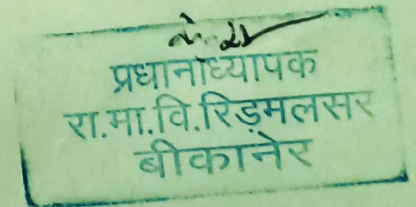 प्रधानाध्यापक
रा.मा.वि.रिड़मलसर
बीकानेर